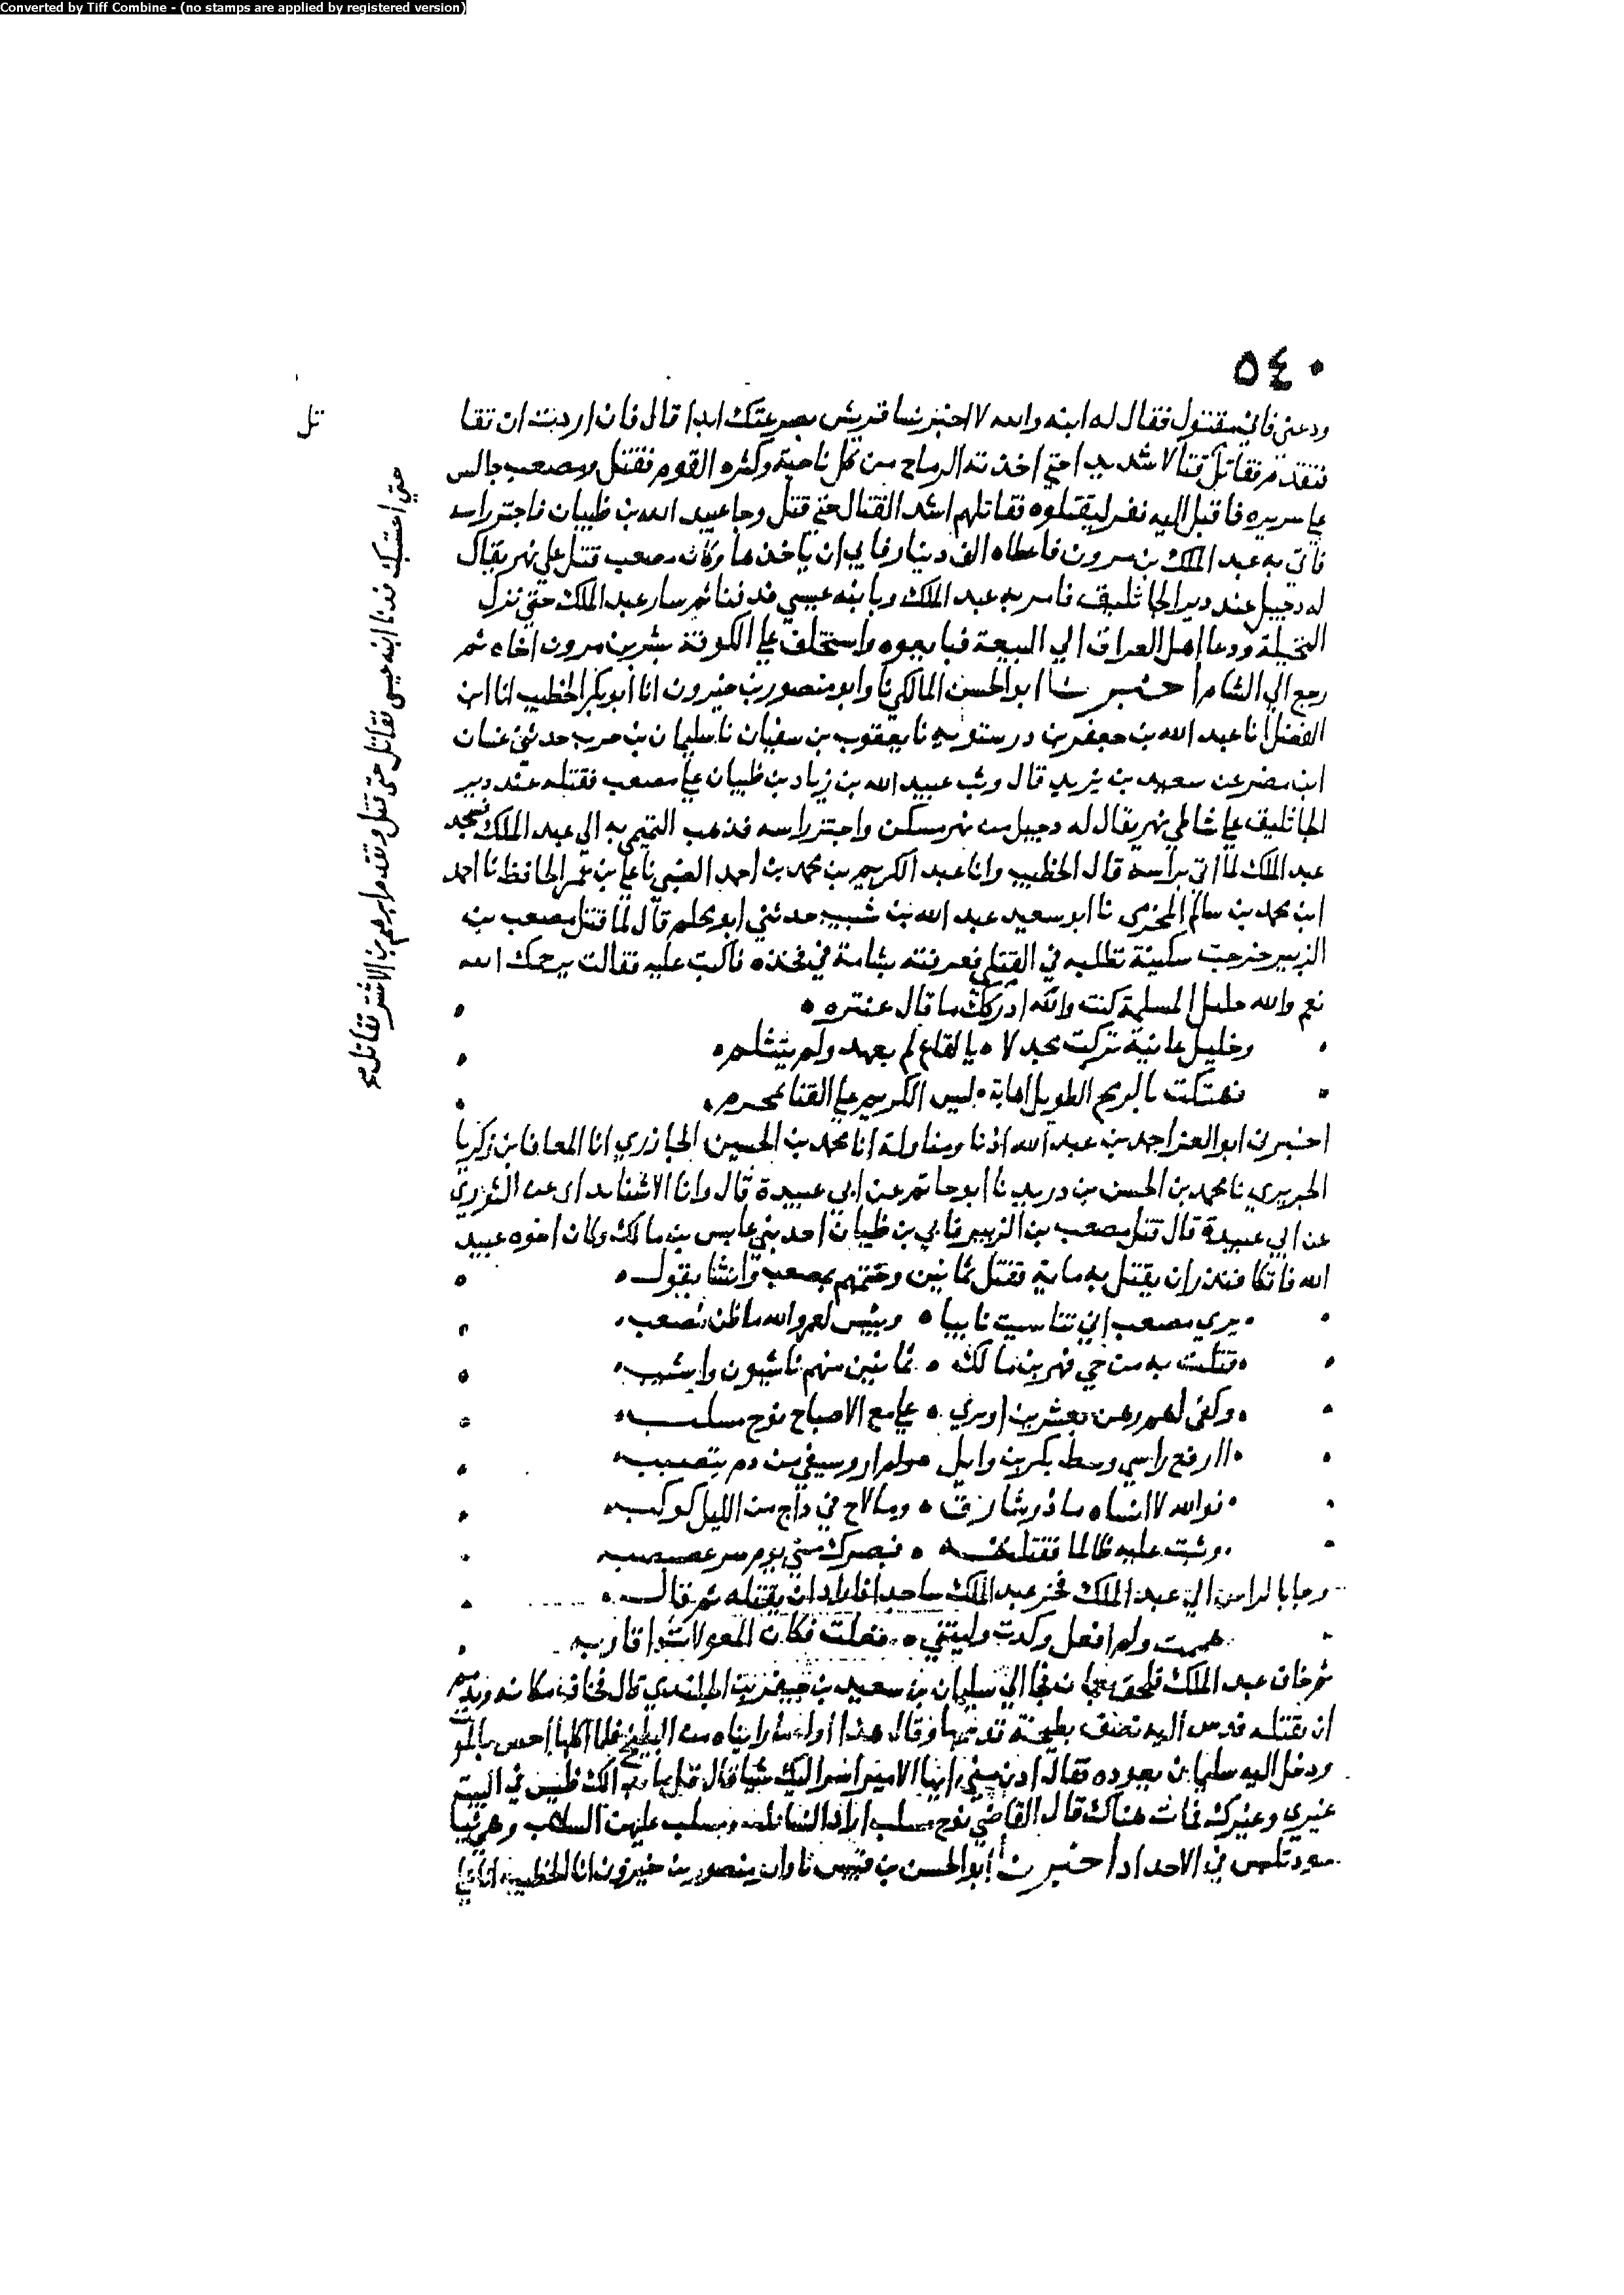 Converted by Tiff Combine - (no stamps are applied by registered version)
٥٤٠
ودعني فاني مقتول فقال له ابنه والله لا اخبر نسا قريش بصرعتك ابدا قال فان اردت ان تقا
تل
فتقدم فقاتل قتالا شديدا حتي اخذته الرماح من كل ناحية وكثره القوم فقتل ومصعب جالس
علي سريره فاقبل اليه نفر ليقتلوه فقاتلهم اشد القتال حتي قتل وجا عبيد الله بن ظبيان فاجتز راسه
فاتي به عبد الملك بن مرون فاعطاه الف دينار فابي ان ياخذها وكان مصعب قتل علي نهر يقال
له دجيل عند دير الجاثليق فامر به عبد الملك وبابنه عيسي فدفنا ثم سار عبد الملك حتي نزل
النخيلة ودعا اهل العراق الي البيعة فبايعوه واستخلف علي الكوفة بشر بن مرون اخاه ثم
رجع الي الشام اخبرنا ابو الحسن المالكي نا وابو منصور بن خيرون انا ابو بكر الخطيب انا ابن
الفضل انا عبد الله بن جعفر بن درستويه نا يعقوب بن سفيان نا سليمان بن حرب حدثني غسان
ابن مضر عن سعيد بن يزيد قال وثب عبيد الله بن زياد بن ظبيان علي مصعب فقتله عند دير
الجاثليق علي شاطي نهر يقال له دجيل من نهر مسكن واجتز راسه فذهب التميمي به الي عبد الملك فسجد
عبد الملك لما اتي براسه قال الخطيب وانا عبد الكريم بن محمد بن احمد الضبي نا علي بن عمر الحافظ نا احمد
ابن محمد بن سالم المخزمي نا ابو سعيد عبد الله بن شبيب حدثني ابو محلم قال لما قتل مصعب بن
الزبير خرجت سكينة تطلبه في القتلي فعرفته بشامة في فخذه فاكبت عليه فقالت يرحمك الله
نعم والله حليل المسلمة كنت والله ادركك ما قال عنتره
وخليل غانية تركت مجدلا بالقاع لم يعهد ولم يتثلم
فهتكت بالرمح الطويل اهابه ليس الكريم علي القنا بمحرم
اخبرنا ابو العز احمد بن عبد الله اذنا ومناولة انا محمد بن الحسين الجازري انا المعافا بن زكريا
الجريري نا محمد بن الحسن بن دريد نا ابو حاتم عن ابي عبيدة قال وانا الاشنانداني عن التوزي
عن ابي عبيدة قال قتل مصعب بن الزبير نابي بن ظبيان احد بني عايش بن مالك وكان اخوه عبيد
الله فاتكا فنذر ان يقتل به ماية فقتل ثمانين وختمهم بمصعب وانشا يقول
يري مصعب اني تناسيت نابيا وبئس لعمر والله ما ظن مصعب
قتلت به من حي فهر بن مالك ثمانين منهم ناشيون واشيب
وكفي لهم رهن بعشرين اويري علي مع الاصباح نوح مسلب
اارفع راسي وسط بكر بن وايل ولم ارو سيفي من دم يتصبب
فوالله لا انساه ما ذر شارق وما لاح في داج من الليل كوكب
وثبت عليه ظالما فقتلته فبصرك مني يوم شر عصبصب
وجا بالراس الي عبد الملك فخر عبد الملك ساجدا فاراد ان يقتله ثم قال
هممت ولم افعل وكدت وليتني فعلت فكان المعولات اقاربه
ثم خاف عبد الملك فلحق بعمان فجا الي سليمان بن سعيد بن جيفر بن الجلندي قال فخاف مكانه وتذمم
ان يقتله فدس اليه نصف بطيخة قد سمها وقال هذا اول ما راينا من البطيخ فلما اكلها احس بالموت
ودخل اليه سليمان يعوده فقال ادن مني ايها الامير اسر اليك شيا قال قل ما بدا لك فليس في البيت
غيري وغيرك فمات هناك قال القاضي نوح مسلب اراد النسا تلبس ومسلب عليهن السلاب وهي ثياب
سود تلبس في الاحداد اخبرنا ابو الحسن بن قبيس نا وابو منصور بن خيرون انا الخطيب انا علي
حتي اعتبك فدنا ابنه عيسى فقاتل حتي قتل وتقدم ابرهيم بن الاشتر فقاتل صح